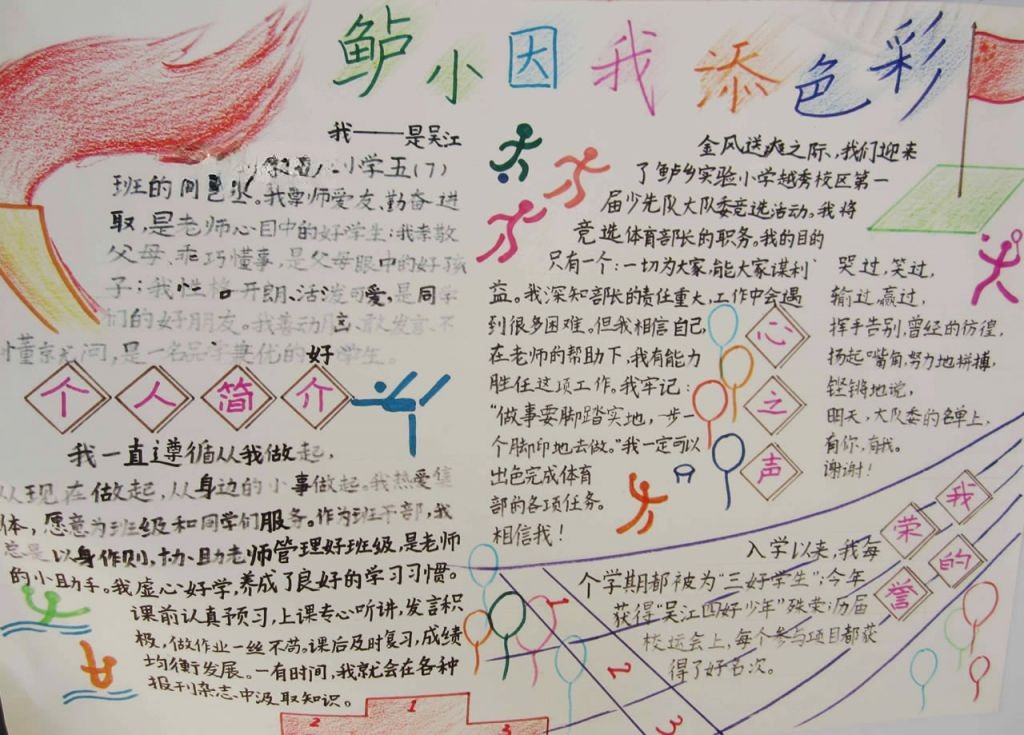 鲈小因我添色彩
我——是吴江
小学五(7)
班的
我尊师爱友、勤奋进
取,是老师心目中的好学生;我孝敬
父母、乖巧懂事,是父母眼中的好孩
子;我性格开朗、活泼可爱,是同学
们的好朋友。我善动脑、敢发言、不
懂就问,是一名品学兼优的好学生。
个人简介
我一直遵循从我做起,
从现在做起,从身边的小事做起。我热爱集
体,愿意为班级和同学们服务。作为班干部,我
总是以身作则,协助老师管理好班级,是老师
的小助手。我虚心好学,养成了良好的学习习惯。
课前认真预习,上课专心听讲,发言积
极,做作业一丝不苟。课后及时复习,成绩
均衡发展。一有时间,我就会在各种
报刊杂志中汲取知识。
金风送爽之际,我们迎来
了鲈乡实验小学越秀校区第一
届少先队大队委竞选活动。我将
竞选体育部长的职务。我的目的
只有一个:一切为大家,能大家谋利
益。我深知部长的责任重大,工作中会遇
到很多困难。但我相信自己
在老师的帮助下,我有能力
胜任这项工作。我牢记:
“做事要脚踏实地,一步一
个脚印地去做。”我一定可以
出色完成体育
部的各项任务。
相信我!
心之声
哭过,笑过,
输过,赢过,
挥手告别,曾经的彷徨,
扬起嘴角,努力地拼搏,
铿锵地说,
明天,大队委的名单上,
有你,有我。
谢谢!
我的荣誉
入学以来,我每
个学期都被为“三好学生”;今年
获得“吴江四好少年”殊荣;历届
校运会上,每个参与项目都获
得了好名次。
1
2
3
2
1
3